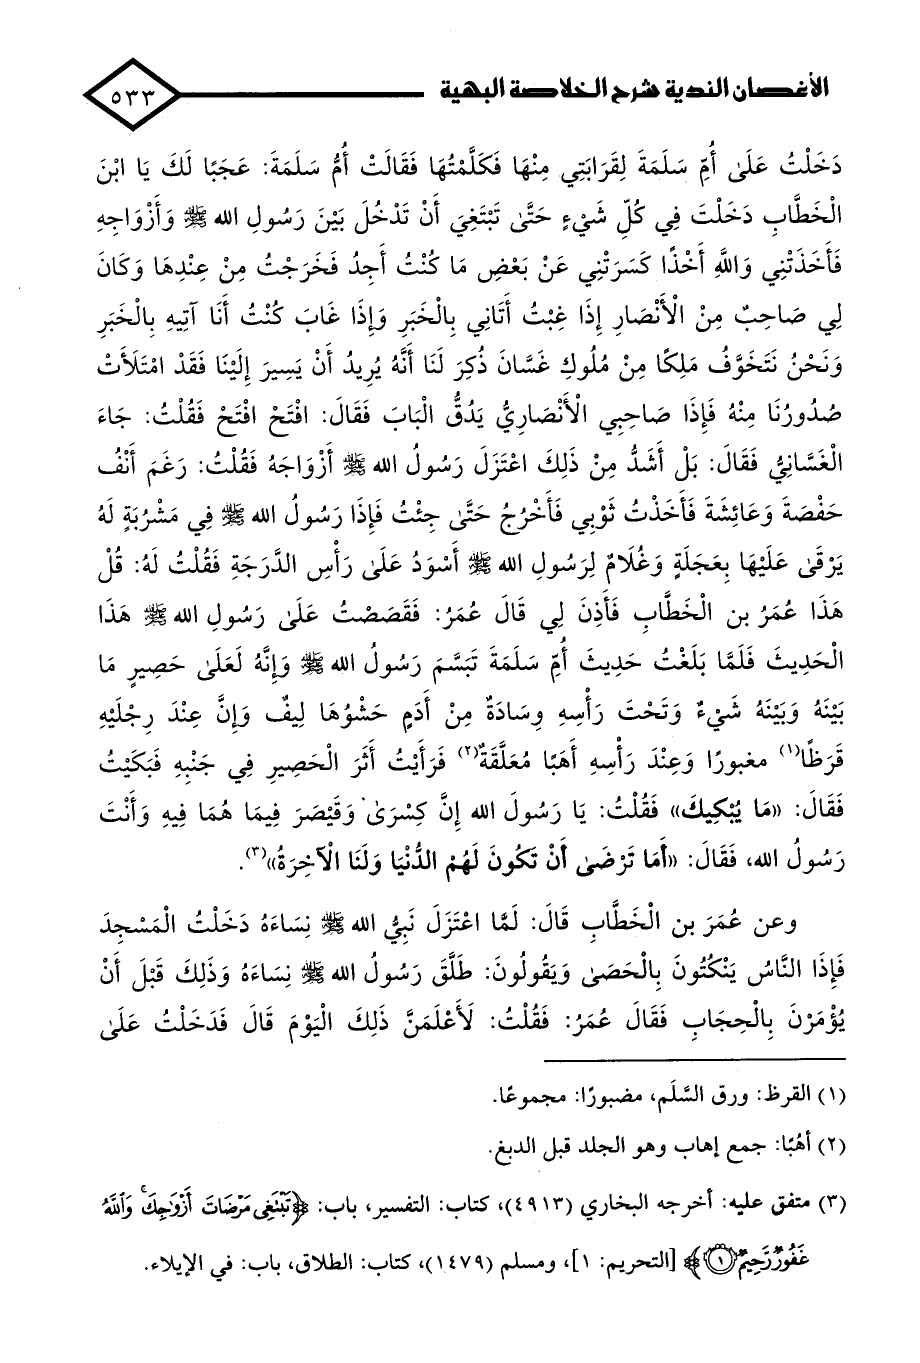 الأغصان الندية شرح الخلاصة البهية ٥٣٣
دَخَلْتُ عَلَىٰ أُمِّ سَلَمَةَ لِقَرَابَتِي مِنْهَا فَكَلَّمْتُهَا فَقَالَتْ أُمُّ سَلَمَةَ: عَجَبًا لَكَ يَا ابْنَ
الْخَطَّابِ دَخَلْتَ فِي كُلِّ شَيْءٍ حَتَّىٰ تَبْتَغِيَ أَنْ تَدْخُلَ بَيْنَ رَسُولِ الله ﷺ وَأَزْوَاجِهِ
فَأَخَذَتْنِي وَاللَّهِ أَخْذًا كَسَرَتْنِي عَنْ بَعْضِ مَا كُنْتُ أَجِدُ فَخَرَجْتُ مِنْ عِنْدِهَا وَكَانَ
لِي صَاحِبٌ مِنْ الْأَنْصَارِ إِذَا غِبْتُ أَتَانِي بِالْخَبَرِ وَإِذَا غَابَ كُنْتُ أَنَا آتِيهِ بِالْخَبَرِ
وَنَحْنُ نَتَخَوَّفُ مَلِكًا مِنْ مُلُوكِ غَسَّانَ ذُكِرَ لَنَا أَنَّهُ يُرِيدُ أَنْ يَسِيرَ إِلَيْنَا فَقَدْ امْتَلَأَتْ
صُدُورُنَا مِنْهُ فَإِذَا صَاحِبِي الْأَنْصَارِيُّ يَدُقُّ الْبَابَ فَقَالَ: افْتَحْ افْتَحْ فَقُلْتُ: جَاءَ
الْغَسَّانِيُّ فَقَالَ: بَلْ أَشَدُّ مِنْ ذَلِكَ اعْتَزَلَ رَسُولُ الله ﷺ أَزْوَاجَهُ فَقُلْتُ: رَغَمَ أَنْفُ
حَفْصَةَ وَعَائِشَةَ فَأَخَذْتُ ثَوْبِي فَأَخْرُجُ حَتَّىٰ جِئْتُ فَإِذَا رَسُولُ الله ﷺ فِي مَشْرُبَةٍ لَهُ
يَرْقَىٰ عَلَيْهَا بِعَجَلَةٍ وَغُلَامٌ لِرَسُولِ الله ﷺ أَسْوَدُ عَلَىٰ رَأْسِ الدَّرَجَةِ فَقُلْتُ لَهُ: قُلْ
هَذَا عُمَرُ بن الْخَطَّابِ فَأَذِنَ لِي قَالَ عُمَرُ: فَقَصَصْتُ عَلَىٰ رَسُولِ الله ﷺ هَذَا
الْحَدِيثَ فَلَمَّا بَلَغْتُ حَدِيثَ أُمِّ سَلَمَةَ تَبَسَّمَ رَسُولُ الله ﷺ وَإِنَّهُ لَعَلَىٰ حَصِيرٍ مَا
بَيْنَهُ وَبَيْنَهُ شَيْءٌ وَتَحْتَ رَأْسِهِ وِسَادَةٌ مِنْ أَدَمٍ حَشْوُهَا لِيفٌ وَإِنَّ عِنْدَ رِجْلَيْهِ
قَرَظًا(١) مغبورًا وَعِنْدَ رَأْسِهِ أَهَبًا مُعَلَّقَةٌ(٢) فَرَأَيْتُ أَثَرَ الْحَصِيرِ فِي جَنْبِهِ فَبَكَيْتُ
فَقَالَ: «مَا يُبْكِيكَ» فَقُلْتُ: يَا رَسُولَ الله إِنَّ كِسْرَىٰ وَقَيْصَرَ فِيمَا هُمَا فِيهِ وَأَنْتَ
رَسُولُ الله، فَقَالَ: «أَمَا تَرْضَىٰ أَنْ تَكُونَ لَهُمْ الدُّنْيَا وَلَنَا الْآخِرَةُ»(٣).
وعن عُمَرَ بن الْخَطَّابِ قَالَ: لَمَّا اعْتَزَلَ نَبِيُّ الله ﷺ نِسَاءَهُ دَخَلْتُ الْمَسْجِدَ
فَإِذَا النَّاسُ يَنْكُتُونَ بِالْحَصَىٰ وَيَقُولُونَ: طَلَّقَ رَسُولُ الله ﷺ نِسَاءَهُ وَذَلِكَ قَبْلَ أَنْ
يُؤْمَرْنَ بِالْحِجَابِ فَقَالَ عُمَرُ: فَقُلْتُ: لَأَعْلَمَنَّ ذَلِكَ الْيَوْمَ قَالَ فَدَخَلْتُ عَلَىٰ
(١) القرظ: ورق السَّلَم، مضبورًا: مجموعًا.
(٢) أهُبًا: جمع إهاب وهو الجلد قبل الدبغ.
(٣) متفق عليه: أخرجه البخاري (٤٩١٣)، كتاب: التفسير، باب: ﴿تَبْتَغِي مَرْضَاتَ أَزْوَاجِكَ ۚ وَاللَّهُ
غَفُورٌ رَّحِيمٌ ١﴾ [التحريم: ١]، ومسلم (١٤٧٩)، كتاب: الطلاق، باب: في الإيلاء.